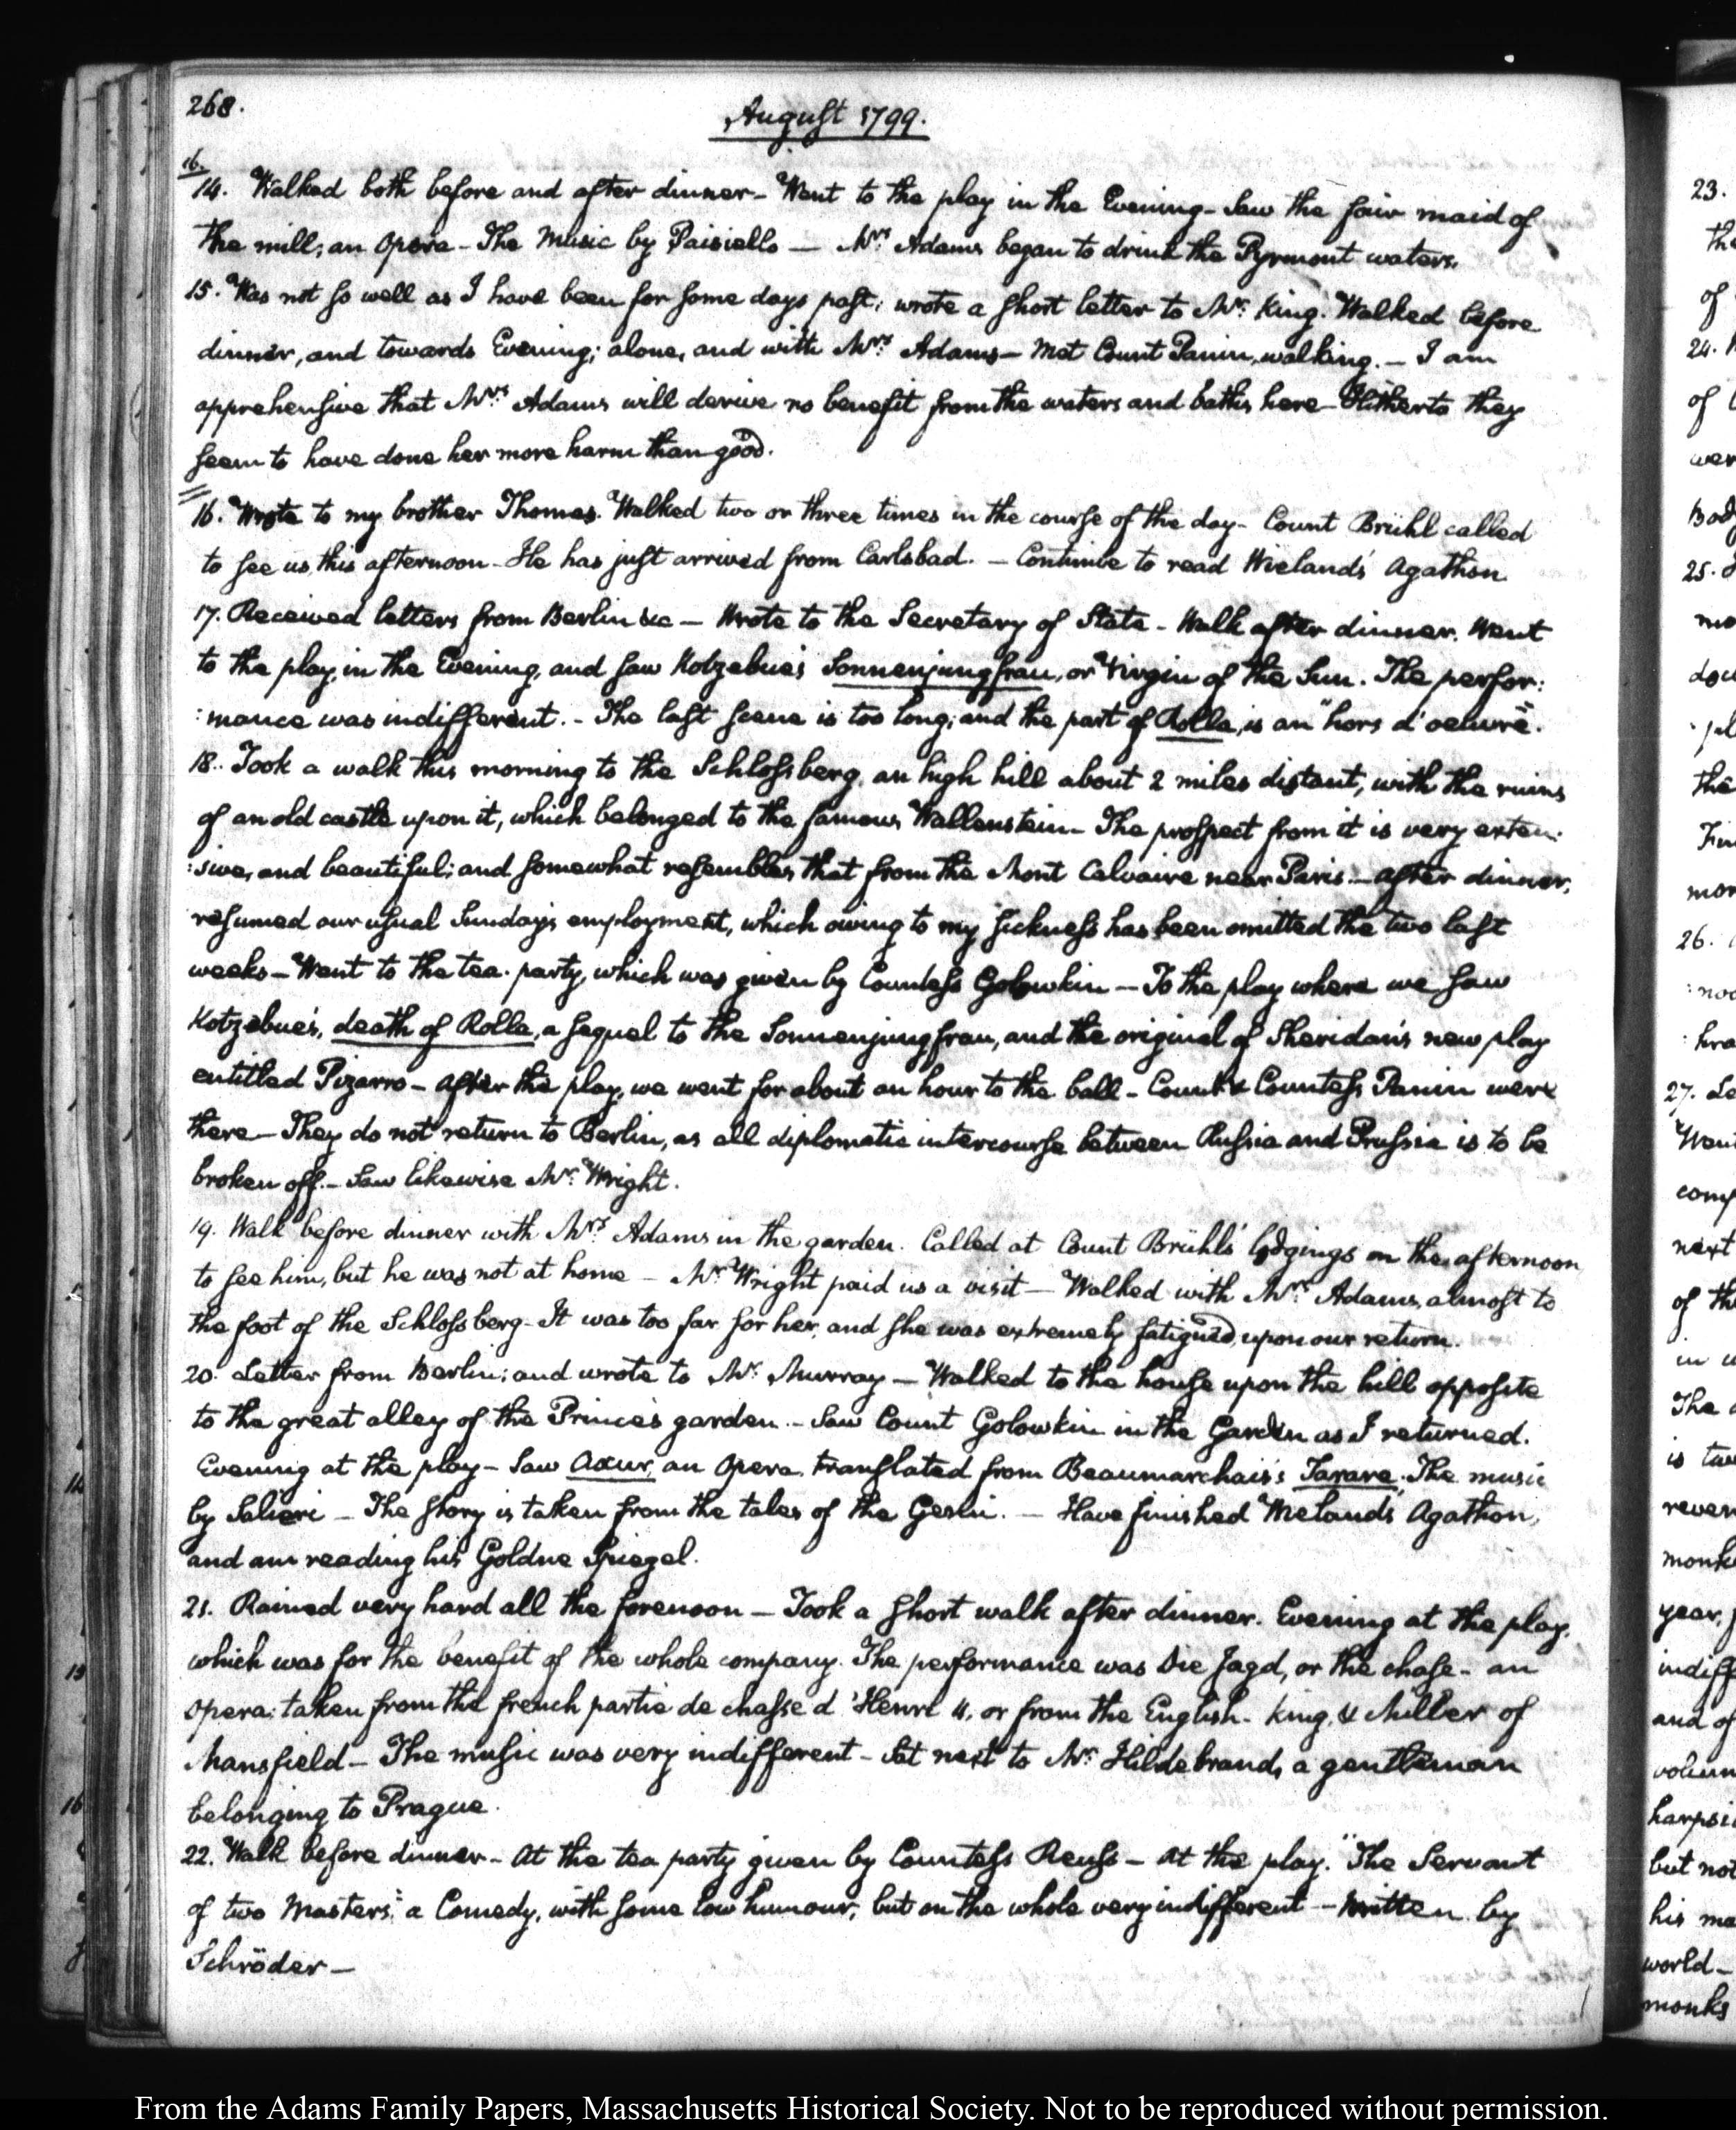 268.
August 1799.
16.
14. Walked both before and after dinner - Went to the play in the Evening - Saw the fair maid of
the mill; an Opera - The Music by Paisiello — Mrs: Adams began to drink the Pyrmont waters.
15. Was not so well as I have been for some days past; wrote a short letter to Mr: King. Walked before
dinner, and towards Evening; alone, and with Mrs: Adams — Met Count Panin, walking. — I am
apprehensive that Mrs: Adams will derive no benefit from the waters and baths here — Hitherto they
seem to have done her more harm than good.
16. Wrote to my brother Thomas. Walked two or three times in the course of the day - Count Brühl called
to see us, this afternoon - He has just arrived from Carlsbad. — Continue to read Wieland's Agathon.
17. Received letters from Berlin &c — Wrote to the Secretary of State - Walk after dinner. Went
to the play, in the Evening, and saw Kotzebue's Sonnenjungfrau, or Virgin of the Sun. The perfor:
:mance was indifferent. - The last scene is too long; and the part of Rolla, is an "hors d'oeuvre".
18. Took a walk this morning to the Schlossberg, an high hill about 2 miles distant, with the ruins
of an old castle upon it, which belonged to the famous Wallenstein — The prospect from it is very exten:
:sive, and beautiful; and somewhat resembles that from the Mont Calvaire near Paris — After dinner,
resumed our usual Sunday's employment, which owing to my sickness has been omitted the two last
weeks — Went to the tea-party, which was given by Countess Golowkin — To the play where we saw
Kotzebue's, death of Rolla, a sequel to the Sonnenjungfrau, and the original of Sheridan's new play
entitled Pizarro — After the play, we went for about an hour to the ball - Count & Countess Panin were
there — They do not return to Berlin, as all diplomatic intercourse between Russia and Prussia is to be
broken off. — Saw likewise Mr: Wright.
19. Walk before dinner with Mrs: Adams in the garden. Called at Count Brühl's lodgings in the afternoon
to see him, but he was not at home — Mr: Wright paid us a visit — Walked with Mrs: Adams, almost to
the foot of the Schlossberg - It was too far for her, and she was extremely fatigued, upon our return.
20. Letter from Berlin; and wrote to Mr: Murray — Walked to the house upon the hill opposite
to the great alley of the Prince's garden. - Saw Count Golowkin in the Garden as I returned.
Evening at the play - Saw Axur, an Opera, translated from Beaumarchais's Tarare. The music
by Salieri — The story is taken from the tales of the Genii. — Have finished Wieland's Agathon,
and am reading his Goldne Spiegel.
21. Rained very hard all the forenoon — Took a short walk after dinner. Evening at the play,
which was for the benefit of the whole company. The performance was Die Jagd, or the chase - an
opera: taken from the french partie de chasse d'Henri 4, or from the English - King, & Miller of
Mansfield — The music was very indifferent - Sat next to Mr: Hildebrand, a gentleman
belonging to Prague.
22. Walk before dinner - At the tea party given by Countess Reuss - At the play. "The Servant
of two Masters" a Comedy, with some low humour, but on the whole very indifferent — Written by
Schröder —
From the Adams Family Papers, Massachusetts Historical Society. Not to be reproduced without permission.